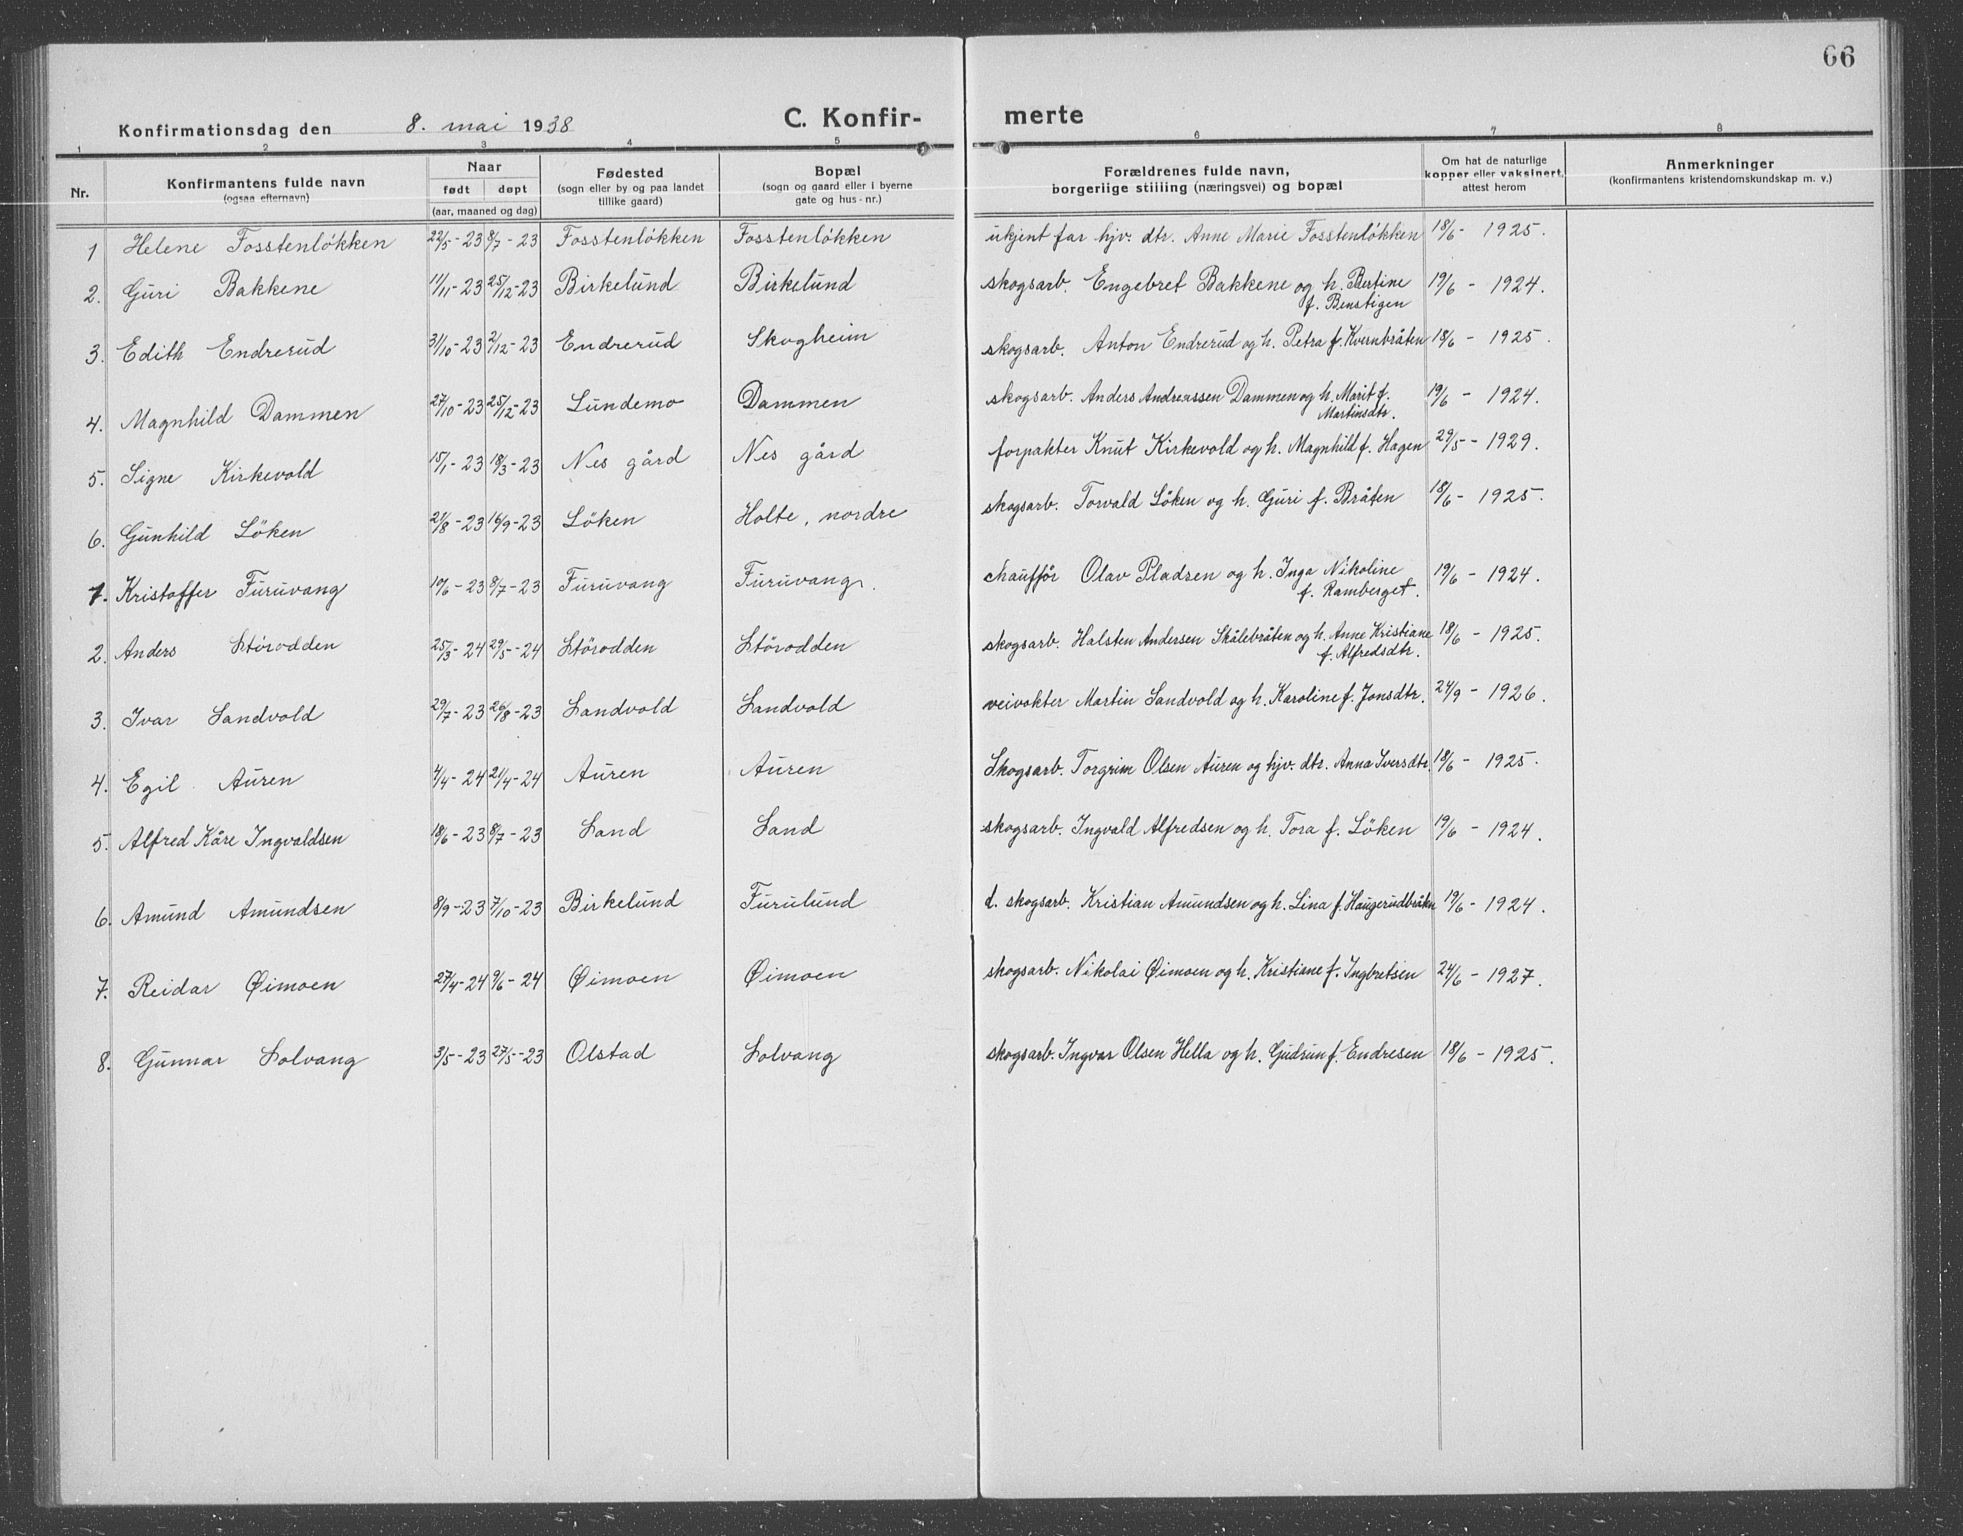 66
Konfirmationsdag den 8. mai 1938 C. Konfir- merte
1 2 3 4 5 6 7 8
Nr. Konfirmantens fulde navn (ogsaa efternavn) Naar født døpt (aar, maaned og dag) Fødested (sogn eller by og paa landet tillike gaard) Bopæl (sogn og gaard eller i byerne gate og hus-nr.) Forældrenes fulde navn, borgerlige stilling (næringsvei) og bopæl Om hat de naturlige kopper eller vaksinert, attest herom Anmerkninger (konfirmantens kristendomskundskap m. v.)
1 Helene Fosstenløkken 22/5-23 8/7-23 Fosstenløkken Fosstenløkken ukjent far hjv. dtr. Anne Marie Fosstenløkken 18/6 - 1925.
2. Guri Bakkene 11/11-23 25/12-23 Birkelund Birkelund skogsarb. Engebret Bakkene og h. Bertine f. Benstigen 19/6 - 1924.
3. Edith Endrerud 31/10-23 2/12-23 Endrerud Skogheim skogsarb. Anton Endrerud og h. Petra f. Kvernbråten 18/6 - 1925.
4. Magnhild Dammen 27/10-23 25/12-23 Lundemo Dammen skogsarb. Anders Andreassen Dammen og h. Marit f. Martinsdtr. 19/6 - 1924.
5. Signe Kirkevold 15/1-23 18/3-23 Nes gård Nes gård forpakter Knut Kirkevold og h. Magnhild f. Hagen 29/5 - 1929.
6. Gunhild Løken 21/8-23 16/9-23 Løken Holte, nordre skogsarb. Torvald Løken og h. Guri f. Bråten 18/6 - 1925.
1. Kristoffer Furuvang 10/6-23 8/7-23 Furuvang Furuvang. chauffør Olav Pladsen og h. Inga Nikoline f. Ramberget. 19/6 - 1924.
2. Anders Størodden 25/3-24 29/5-24 Størodden Størodden skogsarb. Halsten Andersen Skålebråten og h. Anne Kristiane f. Alfredsdtr. 18/6 - 1925.
3. Ivar Sandvold 29/7-23 26/8-23 Sandvold Sandvold veivokter Martin Sandvold og h. Karoline f. Jonsdtr. 24/9 - 1926.
4. Egil Auren 4/4-24 21/4-24 Auren Auren Skogsarb. Torgrim Olsen Auren og hjv. dtr. Anna Iversdtr. 18/6 - 1925.
5. Alfred Kåre Ingvaldsen 18/6-23 8/7-23 Sand Sand skogsarb. Ingvald Alfredsen og h. Tora f. Løken 19/6 - 1924.
6. Amund Amundsen 8/9-23 7/10-23 Birkelund Furulund d. skogsarb. Kristian Amundsen og h. Lina f. Haugerudbråtn 19/6 - 1924.
7. Reidar Øimoen 27/4-24 9/6-24 Øimoen Øimoen skogsarb. Nikolai Øimoen og h. Kristiane f. Ingbretsen 24/6 - 1927.
8. Gunnar Solvang 3/5-23 27/5-23 Olstad Solvang skogsarb. Ingvar Olsen Hella og h. Gudrun f. Endresen 18/6 - 1925.